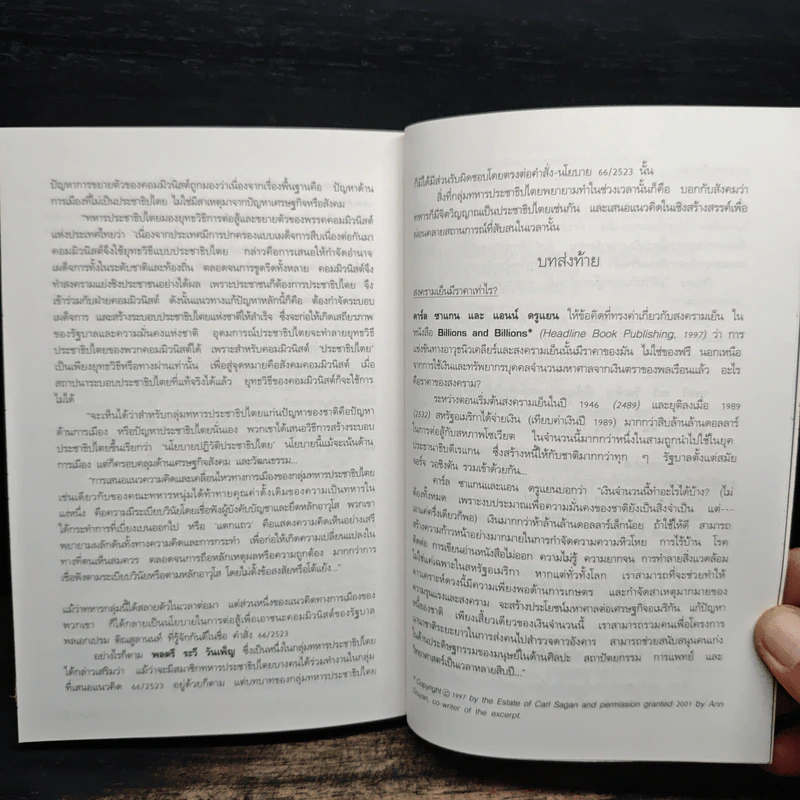 ปัญหาการขยายตัวของคอมมิวนิสต์ถูกมองว่าเนื่องจากเรื่องพื้นฐานคือ ปัญหาด้าน
การเมืองที่ไม่เป็นประชาธิปไตย ไม่ใช่มีสาเหตุมาจากปัญหาเศรษฐกิจหรือสังคม
"ทหารประชาธิปไตยมองยุทธวิธีการต่อสู้และขยายตัวของพรรคคอมมิวนิสต์
แห่งประเทศไทยว่า 'เนื่องจากประเทศมีการปกครองแบบเผด็จการสืบเนื่องต่อกันมา
คอมมิวนิสต์จึงใช้ยุทธวิธีแบบประชาธิปไตย กล่าวคือการเสนอให้กำจัดอำนาจ
เผด็จการทั้งในระดับชาติและท้องถิ่น ตลอดจนการขูดรีดทั้งหลาย คอมมิวนิสต์จึง
ทำสงครามแย่งชิงประชาชนอย่างได้ผล เพราะประชาชนก็ต้องการประชาธิปไตย จึง
เข้าร่วมกับฝ่ายคอมมิวนิสต์ ดังนั้นแนวทางแก้ปัญหาหลักนี้ก็คือ ต้องกำจัดระบอบ
เผด็จการ และสร้างระบอบประชาธิปไตยแห่งชาติให้สำเร็จ ซึ่งจะก่อให้เกิดเสถียรภาพ
ของรัฐบาลและความมั่นคงแห่งชาติ อุดมการณ์ประชาธิปไตยจะทำลายยุทธวิธี
ประชาธิปไตยของพวกคอมมิวนิสต์ได้ เพราะสำหรับคอมมิวนิสต์ 'ประชาธิปไตย'
เป็นเพียงยุทธวิธีหรือทางผ่านเท่านั้น เพื่อสู่จุดหมายคือสังคมคอมมิวนิสต์ เมื่อ
สถาปนาระบอบประชาธิปไตยที่แท้จริงได้แล้ว ยุทธวิธีของคอมมิวนิสต์ก็จะใช้การ
ไม่ได้
"จะเห็นได้ว่าสำหรับกลุ่มทหารประชาธิปไตยแก่นปัญหาของชาติคือปัญหา
ด้านการเมือง หรือปัญหาประชาธิปไตยนั่นเอง พวกเขาได้เสนอวิธีการสร้างระบอบ
ประชาธิปไตยขึ้นเรียกว่า 'นโยบายปฏิวัติประชาธิปไตย' นโยบายนี้แม้จะเน้นด้าน
การเมือง แต่ก็ครอบคลุมด้านเศรษฐกิจสังคม และวัฒนธรรม...
"การเสนอแนวความคิดและเคลื่อนไหวทางการเมืองของกลุ่มทหารประชาธิปไตย
เช่นเดียวกับของคณะทหารหนุ่มได้ท้าทายคุณค่าดั้งเดิมของความเป็นทหารใน
แง่หนึ่ง คือความมีระเบียบวินัยโดยเชื่อฟังผู้บังคับบัญชาและยึดหลักอาวุโส พวกเขา
ได้กระทำการที่เบี่ยงเบนออกไป หรือ 'แตกแถว' คือแสดงความคิดเห็นอย่างเสรี
พยายามผลักดันทั้งทางความคิดและการกระทำ เพื่อก่อให้เกิดความเปลี่ยนแปลงใน
ทางที่ตนเห็นสมควร ตลอดจนการถือหลักเหตุผลหรือความถูกต้อง มากกว่าการ
เชื่อฟังตามระเบียบวินัยหรือตามหลักอาวุโส โดยไม่ตั้งข้อสงสัยหรือโต้แย้ง..."
แม้ว่าทหารกลุ่มนี้ได้สลายตัวในเวลาต่อมา แต่ส่วนหนึ่งของแนวคิดทางการเมืองของ
พวกเขา ก็ได้กลายเป็นนโยบายในการต่อสู้เพื่อเอาชนะคอมมิวนิสต์ของรัฐบาล
พลเอกเปรม ติณสูลานนท์ ที่รู้จักกันดีในชื่อ คำสั่ง 66/2523
อย่างไรก็ตาม พลตรี ระวี วันเพ็ญ ซึ่งเป็นหนึ่งในกลุ่มทหารประชาธิปไตย
ได้กล่าวเสริมว่า แม้ว่าจะมีสมาชิกทหารประชาธิปไตยบางคนได้ร่วมทำงานในกลุ่ม
ที่เสนอแนวคิด 66/2523 อยู่ด้วยก็ตาม แต่บทบาทของกลุ่มทหารประชาธิปไตย
ก็มิได้มีส่วนรับผิดชอบโดยตรงต่อคำสั่ง-นโยบาย 66/2523 นั้น
สิ่งที่กลุ่มทหารประชาธิปไตยพยายามทำในช่วงเวลานั้นก็คือ บอกกับสังคมว่า
ทหารก็มีจิตวิญญาณเป็นประชาธิปไตยเช่นกัน และเสนอแนวคิดในเชิงสร้างสรรค์เพื่อ
ผ่อนคลายสถานการณ์ที่สับสนในเวลานั้น
บทส่งท้าย
สงครามเย็นมีราคาเท่าไร?
คาร์ล ซาแกน และ แอนน์ ดรูแยน ให้ข้อคิดที่ทรงค่าเกี่ยวกับสงครามเย็น ใน
หนังสือ Billions and Billions* (Headline Book Publishing, 1997) ว่า การ
แข่งขันทางอาวุธนิวเคลียร์และสงครามเย็นนั้นมีราคาของมัน ไม่ใช่ของฟรี นอกเหนือ
จากการใช้เงินและทรัพยากรบุคคลจำนวนมหาศาลจากเงินตราของพลเรือนแล้ว อะไร
คือราคาของสงคราม?
ระหว่างตอนเริ่มต้นสงครามเย็นในปี 1946 (2489) และยุติลงเมื่อ 1989
(2532) สหรัฐอเมริกาได้จ่ายเงิน (เทียบค่าเงินปี 1989) มากกว่าสิบล้านล้านดอลลาร์
ในการต่อสู้กับสหภาพโซเวียต ในจำนวนนี้มากกว่าหนึ่งในสามถูกนำไปใช้ในยุค
ประธานาธิบดีเรแกน ซึ่งสร้างหนี้ให้กับชาติมากกว่าทุก ๆ รัฐบาลตั้งแต่สมัย
จอร์จ วอชิงตัน รวมเข้าด้วยกัน...
คาร์ล ซาแกนและแอน ดรูแยนบอกว่า "เงินจำนวนนี้ทำอะไรได้บ้าง? (ไม่
ต้องทั้งหมด เพราะงบประมาณเพื่อความมั่นคงของชาติยังเป็นสิ่งจำเป็น แต่---
เอาแค่ครึ่งเดียวก็พอ) เงินมากกว่าห้าล้านล้านดอลลาร์เล็กน้อย ถ้าใช้ให้ดี สามารถ
สร้างความก้าวหน้าอย่างมากมายในการกำจัดความความหิวโหย การไร้บ้าน โรค
ติดต่อ การเขียนอ่านหนังสือไม่ออก ความไม่รู้ ความยากจน การทำลายสิ่งแวดล้อม
ไม่ใช่แค่เฉพาะในสหรัฐอเมริกา หากแต่ทั่วทั้งโลก เราสามารถที่จะช่วยทำให้
ดาวเคราะห์ดวงนี้มีความเพียงพอด้านการเกษตร และกำจัดสาเหตุมากมายของ
ความรุนแรงและสงคราม จะสร้างประโยชน์มหาศาลต่อเศรษฐกิจอเมริกัน แก้ปัญหา
หนี้ของชาติ เพียงเสี้ยวเดียวของเงินจำนวนนี้ เราสามารถรวมคนเพื่อโครงการ
นานาชาติระยะยาวในการส่งคนไปสำรวจดาวอังคาร สามารถช่วยสนับสนุนคนเก่ง
ในด้านประดิษฐกรรมของมนุษย์ในด้านศิลปะ สถาปัตยกรรม การแพทย์ และ
วิทยาศาสตร์เป็นเวลาหลายสิบปี..."
* Copyright © 1997 by the Estate of Carl Sagan and permission granted 2001 by Ann
Druyan, co-writer of the excerpt.